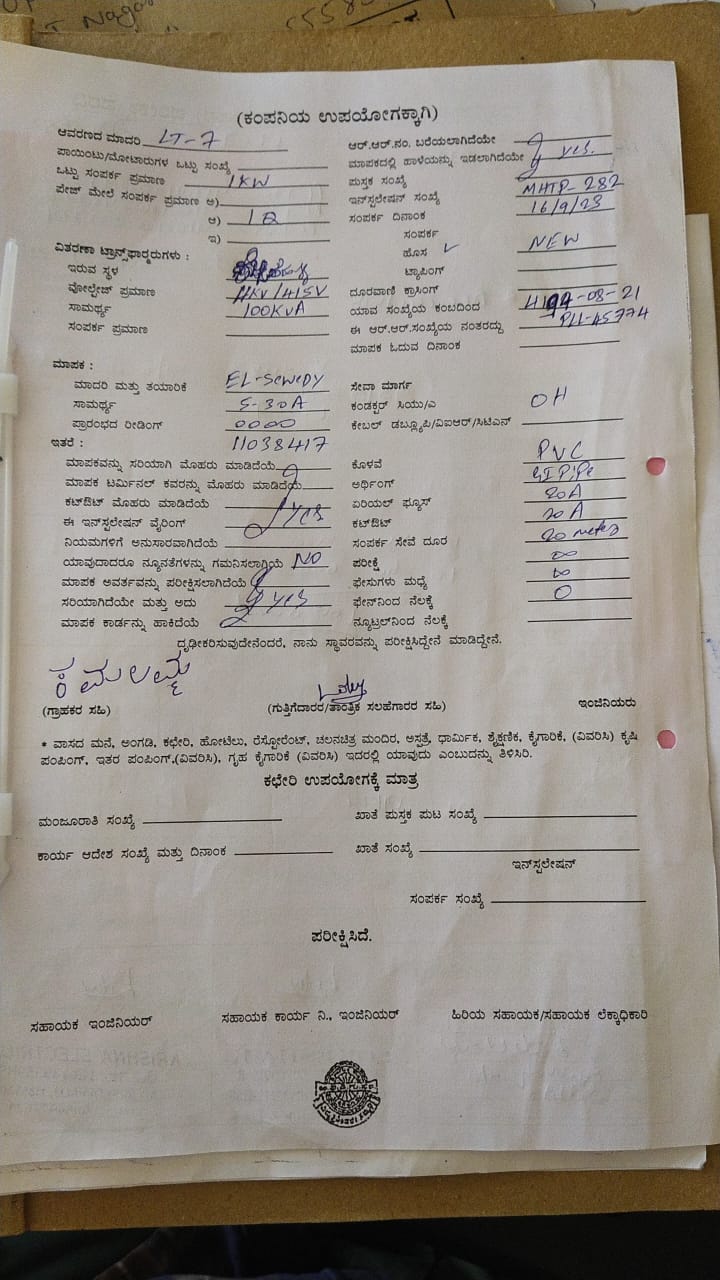 (ಕಂಪನಿಯ ಉಪಯೋಗಕ್ಕಾಗಿ)
ಆವರಣದ ಮಾದರಿ LT-7
ಪಾಯಿಂಟು/ಮೋಟಾರುಗಳ ಒಟ್ಟು ಸಂಖ್ಯೆ
ಒಟ್ಟು ಸಂಪರ್ಕ ಪ್ರಮಾಣ 1KW
ಪೇಜ್ ಮೇಲೆ ಸಂಪರ್ಕ ಪ್ರಮಾಣ ಅ)
ಆ)
ಇ)
ವಿತರಣಾ ಟ್ರಾನ್ಸ್‌ಫಾರ್‍ಮರುಗಳು :
ಇರುವ ಸ್ಥಳ
ವೋಲ್ಟೇಜ್ ಪ್ರಮಾಣ 11KV/415V
ಸಾಮರ್ಥ್ಯ 100KVA
ಸಂಪರ್ಕ ಪ್ರಮಾಣ
ಆರ್.ಆರ್.ನಂ. ಬರೆಯಲಾಗಿದೆಯೇ
ಮಾಪಕದಲ್ಲಿ ಹಾಳೆಯನ್ನು ಇಡಲಾಗಿದೆಯೇ yes.
ಪುಸ್ತಕ ಸಂಖ್ಯೆ
ಇನ್‌ಸ್ಟಲೇಷನ್ ಸಂಖ್ಯೆ MHTP-282
ಸಂಪರ್ಕ ದಿನಾಂಕ 16/9/23
ಸಂಪರ್ಕ
ಹೊಸ ✓ NEW
ಟ್ಯಾಪಿಂಗ್
ದೂರವಾಣಿ ಕ್ರಾಸಿಂಗ್
ಯಾವ ಸಂಖ್ಯೆಯ ಕಂಬದಿಂದ
ಈ ಆರ್.ಆರ್.ಸಂಖ್ಯೆಯ ನಂತರದ್ದು PLL-45774
ಮಾಪಕ ಓದುವ ದಿನಾಂಕ
ಮಾಪಕ :
ಮಾದರಿ ಮತ್ತು ತಯಾರಿಕೆ EL-SeweDY
ಸಾಮರ್ಥ್ಯ 5-30A
ಪ್ರಾರಂಭದ ರೀಡಿಂಗ್ 0000
ಇತರೆ : 11038417
ಮಾಪಕವನ್ನು ಸರಿಯಾಗಿ ಮೊಹರು ಮಾಡಿದೆಯೆ
ಮಾಪಕ ಟರ್ಮಿನಲ್ ಕವರನ್ನು ಮೊಹರು ಮಾಡಿದೆಯೆ
ಕಟ್‌ಔಟ್ ಮೊಹರು ಮಾಡಿದೆಯೆ
ಈ ಇನ್‌ಸ್ಟಲೇಷನ್ ವೈರಿಂಗ್ yes
ನಿಯಮಗಳಿಗೆ ಅನುಸಾರವಾಗಿದೆಯೆ
ಯಾವುದಾದರೂ ನ್ಯೂನತೆಗಳನ್ನು ಗಮನಿಸಲಾಗಿಯೆ NO
ಮಾಪಕ ಅವರ್ತವನ್ನು ಪರೀಕ್ಷಿಸಲಾಗಿದೆಯೆ
ಸರಿಯಾಗಿದೆಯೇ ಮತ್ತು ಅದು yes
ಮಾಪಕ ಕಾರ್ಡನ್ನು ಹಾಕಿದೆಯೆ
ಸೇವಾ ಮಾರ್ಗ
ಕಂಡಕ್ಟರ್ ಸಿಯು/ಎ OH
ಕೇಬಲ್ ಡಬ್ಲ್ಯೂಪಿ/ವಿಐಆರ್/ಸಿಟಿಎನ್
ಕೊಳವೆ PVC
ಅರ್ಥಿಂಗ್ GI PiPe
ಏರಿಯಲ್ ಫ್ಯೂಸ್ 20A
ಕಟ್‌ಔಟ್ 20A
ಸಂಪರ್ಕ ಸೇವೆ ದೂರ 20 meter
ಪರೀಕ್ಷೆ ∞
ಫೇಸುಗಳು ಮಧ್ಯೆ ∞
ಫೇನ್‌ನಿಂದ ನೆಲಕ್ಕೆ 0
ನ್ಯೂಟ್ರಲ್‌ನಿಂದ ನೆಲಕ್ಕೆ
ದೃಢೀಕರಿಸುವುದೇನೆಂದರೆ, ನಾನು ಸ್ಥಾವರವನ್ನು ಪರೀಕ್ಷಿಸಿದ್ದೇನೆ ಮಾಡಿದ್ದೇನೆ.
ಕಮಲಮ್ಮ
(ಗ್ರಾಹಕರ ಸಹಿ) (ಗುತ್ತಿಗೆದಾರರ/ತಾಂತ್ರಿಕ ಸಲಹೆಗಾರರ ಸಹಿ) ಇಂಜಿನಿಯರು
* ವಾಸದ ಮನೆ, ಅಂಗಡಿ, ಕಛೇರಿ, ಹೋಟೆಲು, ರೆಸ್ಟೋರೆಂಟ್, ಚಲನಚಿತ್ರ ಮಂದಿರ, ಅಸ್ಪತ್ರೆ, ಧಾರ್ಮಿಕ, ಶೈಕ್ಷಣಿಕ, ಕೈಗಾರಿಕೆ, (ವಿವರಿಸಿ) ಕೃಷಿ
ಪಂಪಿಂಗ್, ಇತರ ಪಂಪಿಂಗ್,(ವಿವರಿಸಿ), ಗೃಹ ಕೈಗಾರಿಕೆ (ವಿವರಿಸಿ) ಇದರಲ್ಲಿ ಯಾವುದು ಎಂಬುದನ್ನು ತಿಳಿಸಿರಿ.
ಕಛೇರಿ ಉಪಯೋಗಕ್ಕೆ ಮಾತ್ರ
ಮಂಜೂರಾತಿ ಸಂಖ್ಯೆ ಖಾತೆ ಪುಸ್ತಕ ಪುಟ ಸಂಖ್ಯೆ
ಕಾರ್ಯ ಆದೇಶ ಸಂಖ್ಯೆ ಮತ್ತು ದಿನಾಂಕ ಖಾತೆ ಸಂಖ್ಯೆ
ಇನ್‌ಸ್ಟಲೇಷನ್
ಸಂಪರ್ಕ ಸಂಖ್ಯೆ
ಪರೀಕ್ಷಿಸಿದೆ.
ಸಹಾಯಕ ಇಂಜಿನಿಯರ್ ಸಹಾಯಕ ಕಾರ್ಯ ನಿ., ಇಂಜಿನಿಯರ್ ಹಿರಿಯ ಸಹಾಯಕ/ಸಹಾಯಕ ಲೆಕ್ಕಾಧಿಕಾರಿ